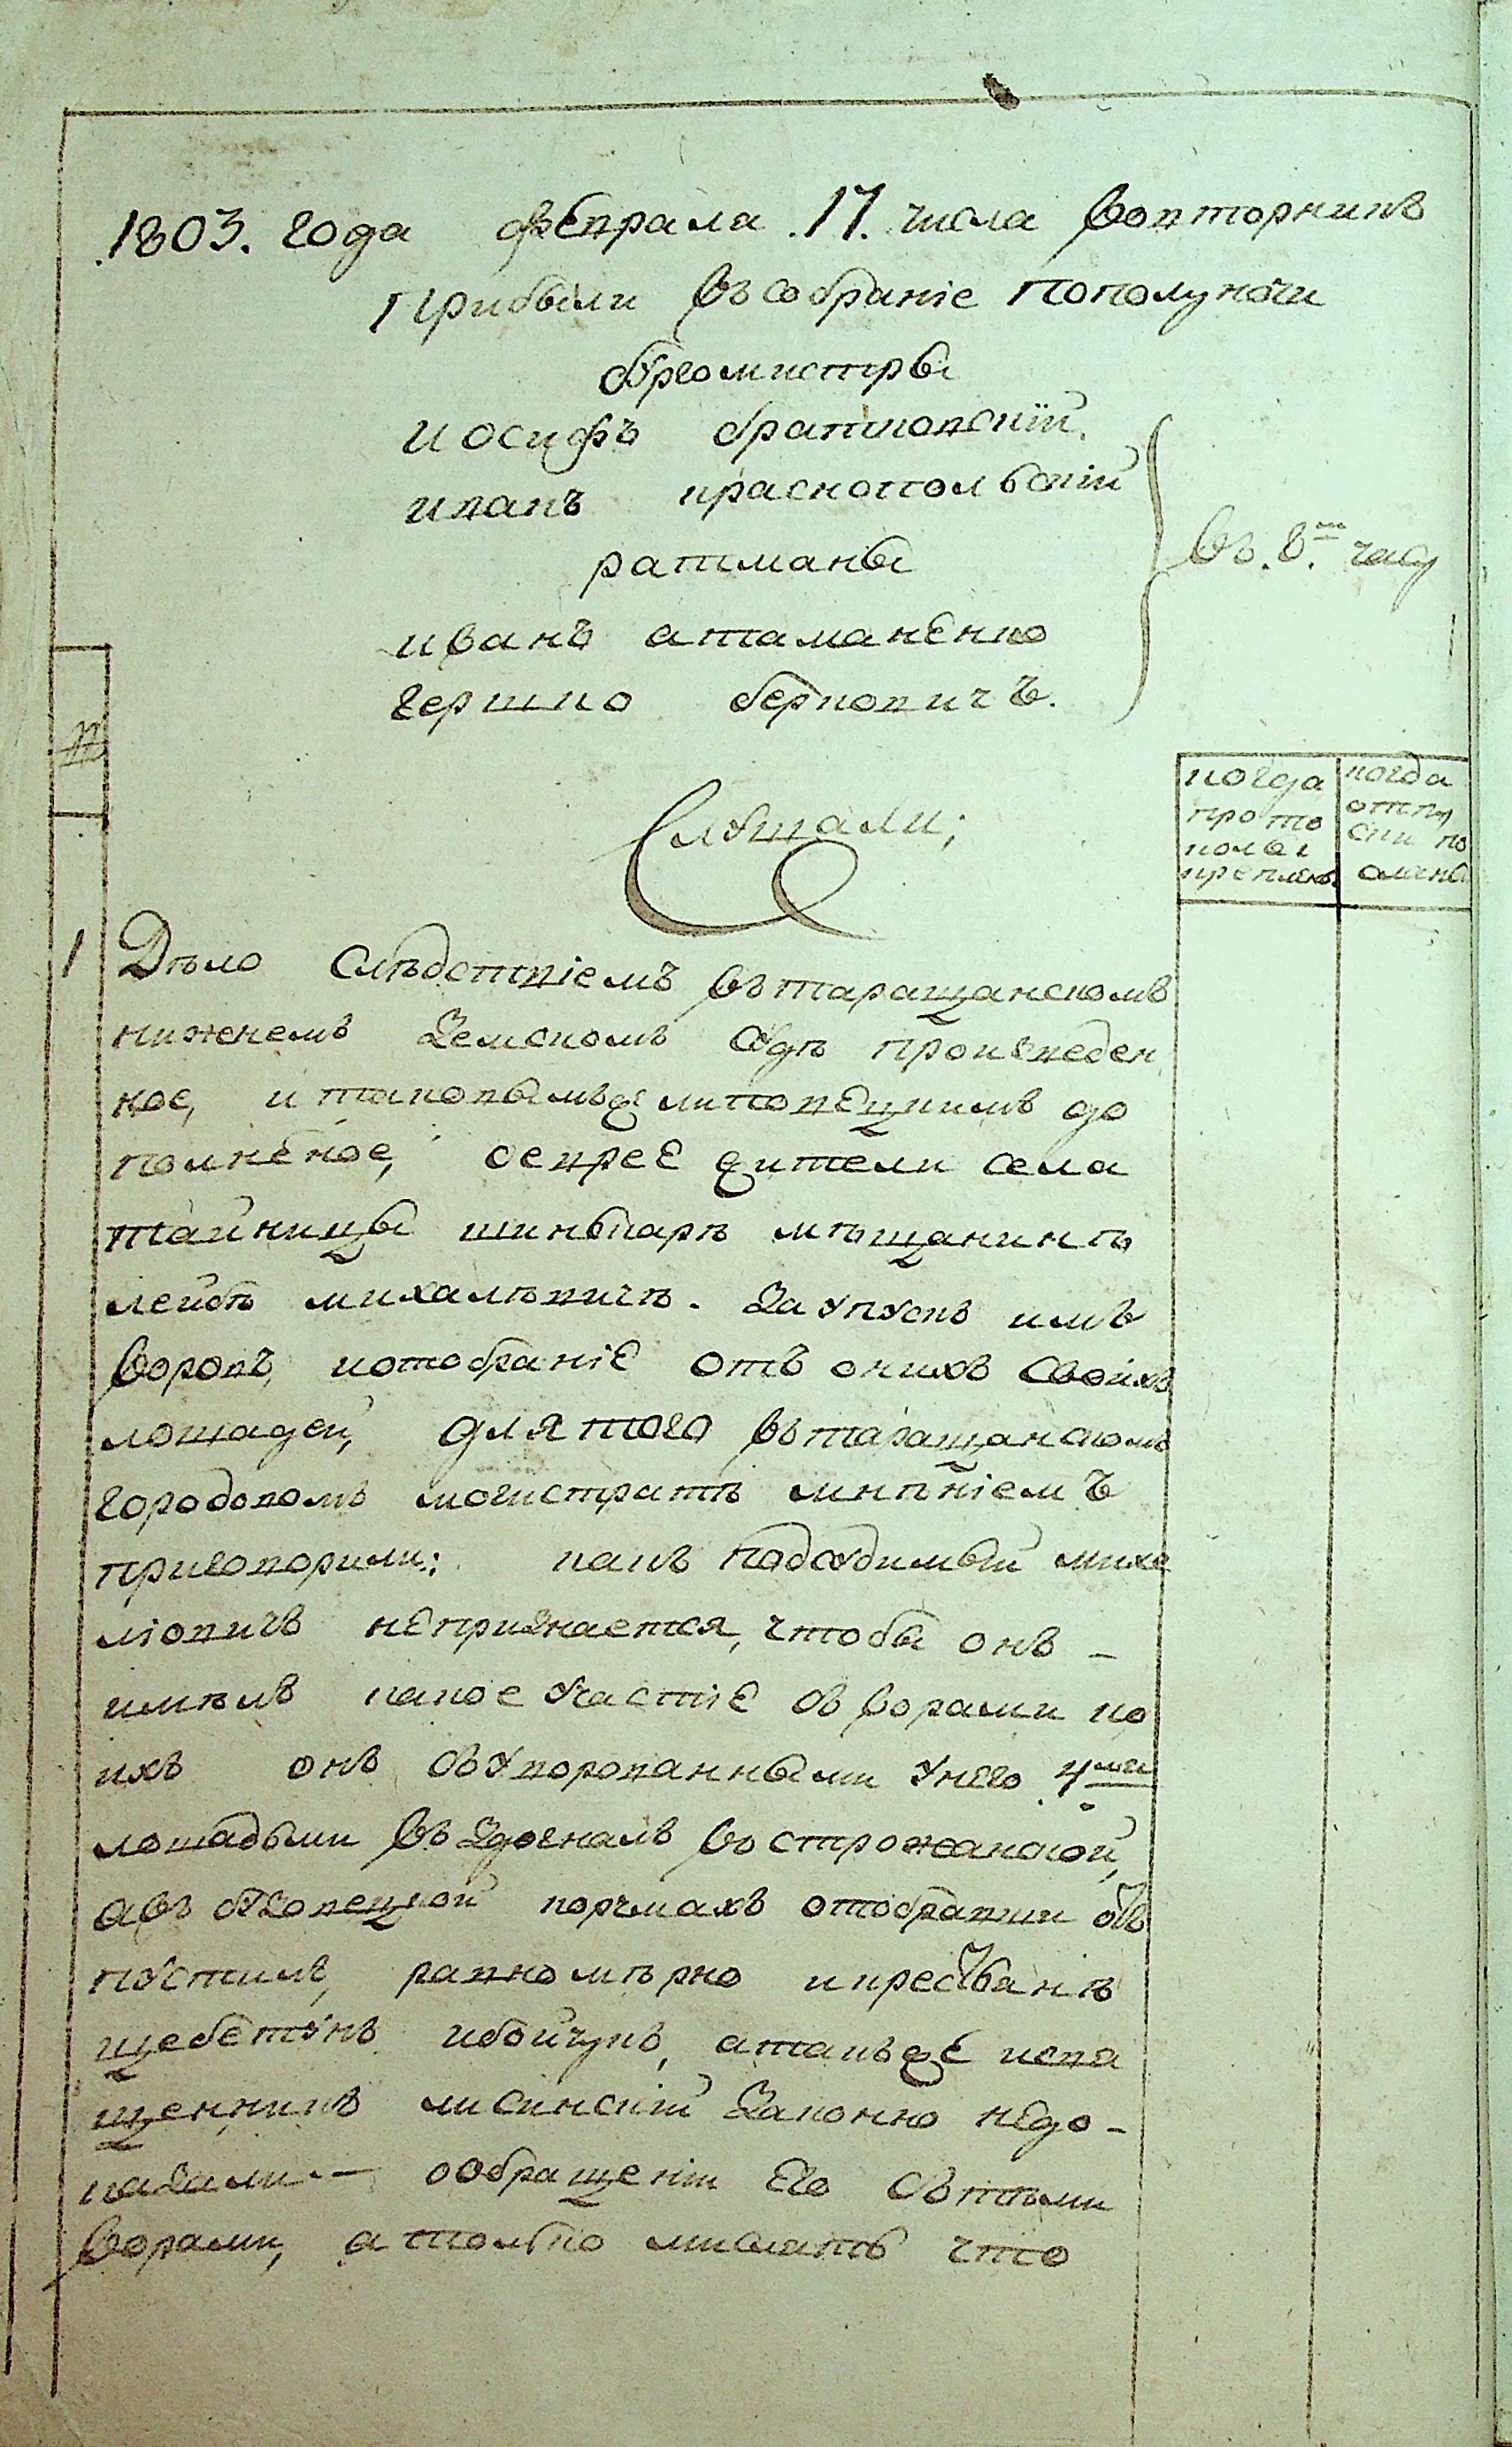 1803. года февраля .17. числа вовторникъ
Прибыли въ собраніе пополуночи
бургомистры
иосифъ братковскій
иванъ краснопольскій
ратманы
иванъ атаманенко
гершко берковичъ.
въ. 8.м часу
Слушали;
когда прото колы крепленъ
когда отпу ски по сланы
№
1 Дѣло слѣдствіемъ въ таращанскомъ
нижнемъ земскомъ судѣ произведен
ное, и таковымъже липовецкимъ до
полненое, оеврее жители села
тайницы шинкарѣ мѣщанинѣ
лейбѣ михалѣвичѣ. за упускъ имъ
воровъ, иотобраніе отъ онихъ своихъ
лошадей, для того въ таращанскомъ
городовомъ могистратѣ мнѣніемъ
приговорили: какъ подсудимый михе
ліовичъ непризнается, чтобы онъ –
имѣлъ какое участіе съ ворами ко
ихъ онъ съ уворованными унего 4ма
лошадьми въ здогналъ въ строжанской,
авъ бузовецкой корчмахъ отобравши от
пустилъ, равномѣрно икрестьянѣ
щебетунъ ибойчукъ, атакъже исвя
щенникъ лисинскій законно недо –
казали – ообращеніи его съ тѣми
ворами, а только мислятъ что